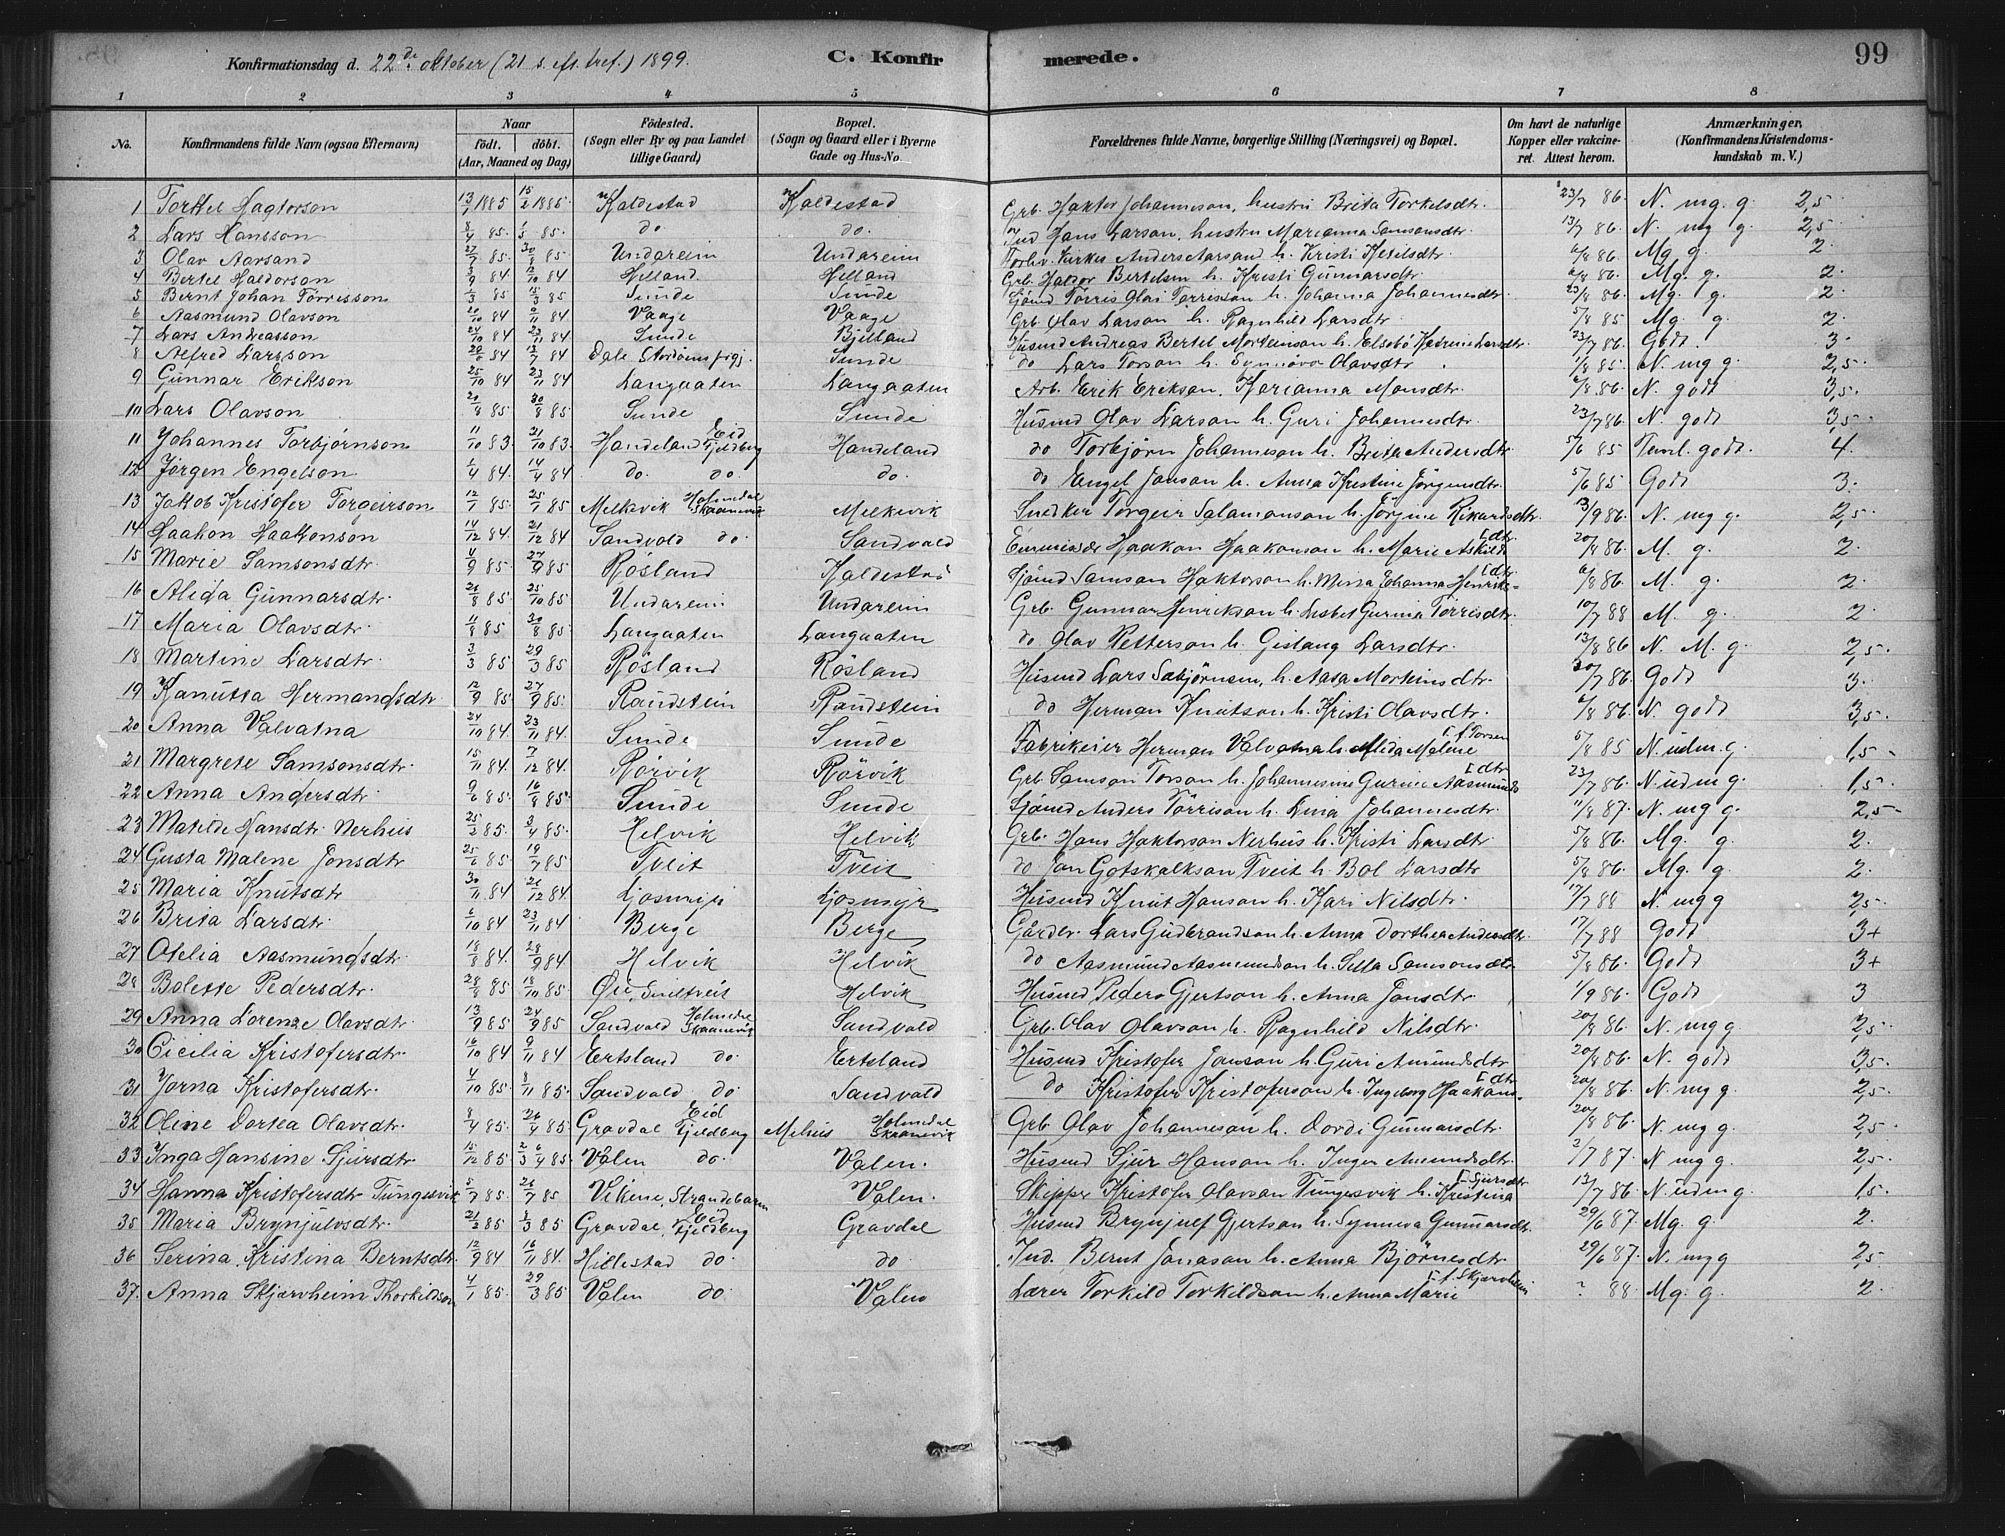 Konfirmationsdag d. 22de oktober (21 s. eft. tref.) 1899. C. Konfirmerede. 99
1 2 3 4 5 6 7 8
No. Konfirmandens fulde Navn (ogsaa Efternavn) Naar født. døbt. (Aar, Maaned og Dag) Födested. (Sogn eller By og paa Landet tillige Gaard) Bopæl. (Sogn og Gaard eller i Byerne Gade og Hus-No. Forældrenes fulde Navne, borgerlige Stilling (Næringsvei) og Bopæl. Om havt de naturlige Kopper eller vakcineret. Attest herom. Anmærkninger, (Konfirmandens Kristendomskundskab m. V.)
1 Torkel Hagtorson 13/1 1885 15/2 1885 Kaldestad Kaldestad Grb. Haktor Johanneson, hustru Brita Torkelsdtr. 23/7 86. N. mg. g. 2,5
2 Lars Hansson 8/4 85. 1/5 85. do do. Ind Hans Larson, hustru Marianna Samsonsdtr. 13/7 86. N. mg g. 2,5
3 Olav Aarsand 27/7 85. 30/8 85 Undareim Undareim Kirkes Anders Aarsand h. Kristi Ketilsdtr. 6/8 86. Mg g. 2
4 Bertel Haldorson 3/9 84. 12/10 84 Helland Helland Grb. Haldor Bertelson h. Kristi Gunnarsdtr. 6/8 86. Mg. g. 2.
5 Bernt Johan Törrisson 1/3 85 15/3 85 Sunde Sunde Sjömd Törris Olai Törrisson h. Johanna Johannesdtr. 23/8 86. Mg. g. 2
6 Aasmund Olavson 20/10 84 2/11 84 Vaage Vaage Grb Olav Larson h. Ragnhild Larsdtr. 5/8 85 Mg. g. 2.
7 Lars Andreasson 24/10 84 23/11 84 Sunde Bjelland Husmd Andreas Bertel Morteinson h. Elsebö Larsdtr. 23/7 86. Godt. 3.
8 Alfred Larsson 29/6 84 13/7 84 Dale Sunde do Lars Torson h. Synnöve Olavsdtr. 1/8 85. N. mg g. 2,5.
9 Gunnar Erikson 25/10 84 23/11 84 Langaaten Langaaten Arb. Erik Erikson, Marianna Monsdtr. 6/8 86. N. godt 3,5.
10 Lars Olavson 20/8 85. 30/8 85. Sunde Sunde Husmd Olav Larson h. Guri Johannesdtr. 23/7 86. N. godt 3,5
11 Johannes Torbjørnson 11/10 83. 21/10 83. Handeland Eid Fjeldberg Handeland do Torbjörn Johanneson h. Brita Andersdtr. 5/6 85 Teml. godt. 4.
12 Jørgen Engelson 1/4 84 14/4 84 do. do. do. do Engel Janson h. Anna Kristine Jörgensdtr. 5/6 85 Godt 3.
13 Jakob Kristofer Torgeirson 12/7 85. 25/7 85 Melkevik Holmedal Skaanevik Melkevik Snedker Torgeir Salamonson h. Jörgine Rikardsdtr. 13/9 86. N. mg g. 2,5.
14 Haakon Haakonson 14/12 84. 21/12 84 Sandvold do. Sandvald Haakon Haakonson h. Marie Askildsdtr 20/8 86. M. g. 2.
15 Marie Samsonsdtr. 4/9 85 27/9 85 Rösland Kaldestad Sjömd Samson Haktorson h. Mina Johanna Henriksdtr 6/8 86. M. g. 2
16 Alida Gunnarsdtr. 26/8 85. 25/10 85. Undareim Undareim Grb. Gunnar Henrikson h. Lisbet Gurina Törrisdtr. 10/7 88 M. g. 2
17 Maria Olavsdtr. 11/8 85 30/8 85. Langaaten Langaaten do Olav Petterson h. Gislaug Larsdtr. 13/8 86 N. M. g. 2,5.
18 Martine Larsdtr. 3/3 85 29/3 85 Rösland Rösland Husmd Lars Sæbjörnsen, h. Aasa Mortinsdtr. 30/7 86. Godt 3.
19 Kanutta Hermandsdtr 12/9 85 27/9 85. Raudstein Raudstein do Herman Knutson h. Kristi Olavsdtr. 6/8 86. N. godt 3,5.
20 Anna Valvatna 24/10 84. 23/11 84. Sunde Sunde Fabrikeier Herman Valvatna h. Alida Malene f. Torsen 5/8 85 N. udm. g. 1,5
21 Margrete Samsonsdtr. 15/11 84. 7/12 84. Rörvik Rörvik Grb. Samson Torson h. Johannesine Gurine Aasmundsdtr 23/7 86. N. udm g. 1,5
22 Anna Andersdtr. 9/6 85. 16/8 85. Sunde Sunde Sjömd Anders Törrison h. Lina Johannesdtr. 11/8 87. N. mg g. 2,5
23 Matilde Hansdtr. Nerhus 25/2 85. 3/4 85. Helvik Helvik Grb. Hans Haktorson Nerhus h. Kristi Larsdtr 5/8 86. Mg. g. 2.
24 Gusta Malene Jonsdtr 25/6 85. 19/7 85 Tveit Tveit do Jon Gotskalkson Tveit h. Bol Larsdtr 5/8 86. Mg. g. 2.
25 Maria Knutsdtr 30/11 84 21/12 84. Ljosmyr Ljosmyr Husmd Knut Hanson h. Kari Nilsdtr. 17/7 88 N. mg g 2,5.
26 Brita Larsdtr. 6/10 84 23/11 84 Berge Berge Gardbr. Lars Gudbrandson h. Anna Dorthea Andersdtr. 17/7 88 Godt 3+
27 Otelia Aasmundsdtr. 18/8 84. 28/9 84 Helvik Helvik do Aasmund Aasmundson h. Silla Samsonsdtr 5/8 86. Godt 3+
28 Bolette Pedersdtr. 28/8 85 18/10 85. Øre, Helvik Husmd Peder Gjertson h. Anna Jonsdtr. 1/9 86. Godt 3
29 Anna Lorenze Olavsdtr. 13/9 85. 24/9 85 Sandvald Holmedal Skaanevik Sandvald Grb. Olav Olavson h. Ragnhild Nilsdtr. 20/8 86. N. mg g 2,5.
30 Cicilia Kristofersdtr. 16/10 84 9/11 84 Ertsland do. Ertsland Husmd Kristofer Janson h. Guri Amundsdtr 20/8 86. N. godt 3,5.
31 Jorna Kristofersdtr. 4/10 85. 8/11 85. Sandvald do Sandvald do Kristofer Kristoferson h. Ingeborg Haakonsdtr 20/8 86. N. mg g. 2,5.
32 Oline Dortea Olavsdtr. 8/4 85. 26/4 85. Gravdal Eid Fjeldberg Melhus Holmedal Skaanevik Grb Olav Johanneson h. Dordi Gunnarsdtr. 20/8 86. N. mg g. 2,5.
33 Inga Hansine Sjursdtr. 15/12 85. 6/4 85. Valen do. Valen. Husmd Sjur Hanson h. Inger Amundsdtr. 2/7 87. N mg g. 2,5.
34 Hanna Kristofersdtr Tungesvik 5/7 85. 26/7 85 Vikene, Strandebarm Valen. Skipper Kristofer Olavson Tungesvik h. Kristina Sjursdtr 13/7 86. N. udm g. 1,5.
35 Maria Brynjulvsdtr. 21/2 85 1/3 85 Gravdal, Eid Fjeldberg Gravdal Husmd Brynjulf Gjertson h. Synneva Gunnarsdtr 29/6 87. Mg. g. 2.
36 Serina Kristina Berntsdtr. 12/9 84 16/11 84. Hillestad do. do Ind. Bernt Jonason h. Anna Björnesdtr. 29/6 87. N. mg g 2,5.
37. Anna Skjærvheim Thorkildson 4/1 85. 29/3 85. Valen do. Valen Lærer Torkild Torkildson h. Anna Marie f. Skjærvheim ? 88. Mg. g. 2.